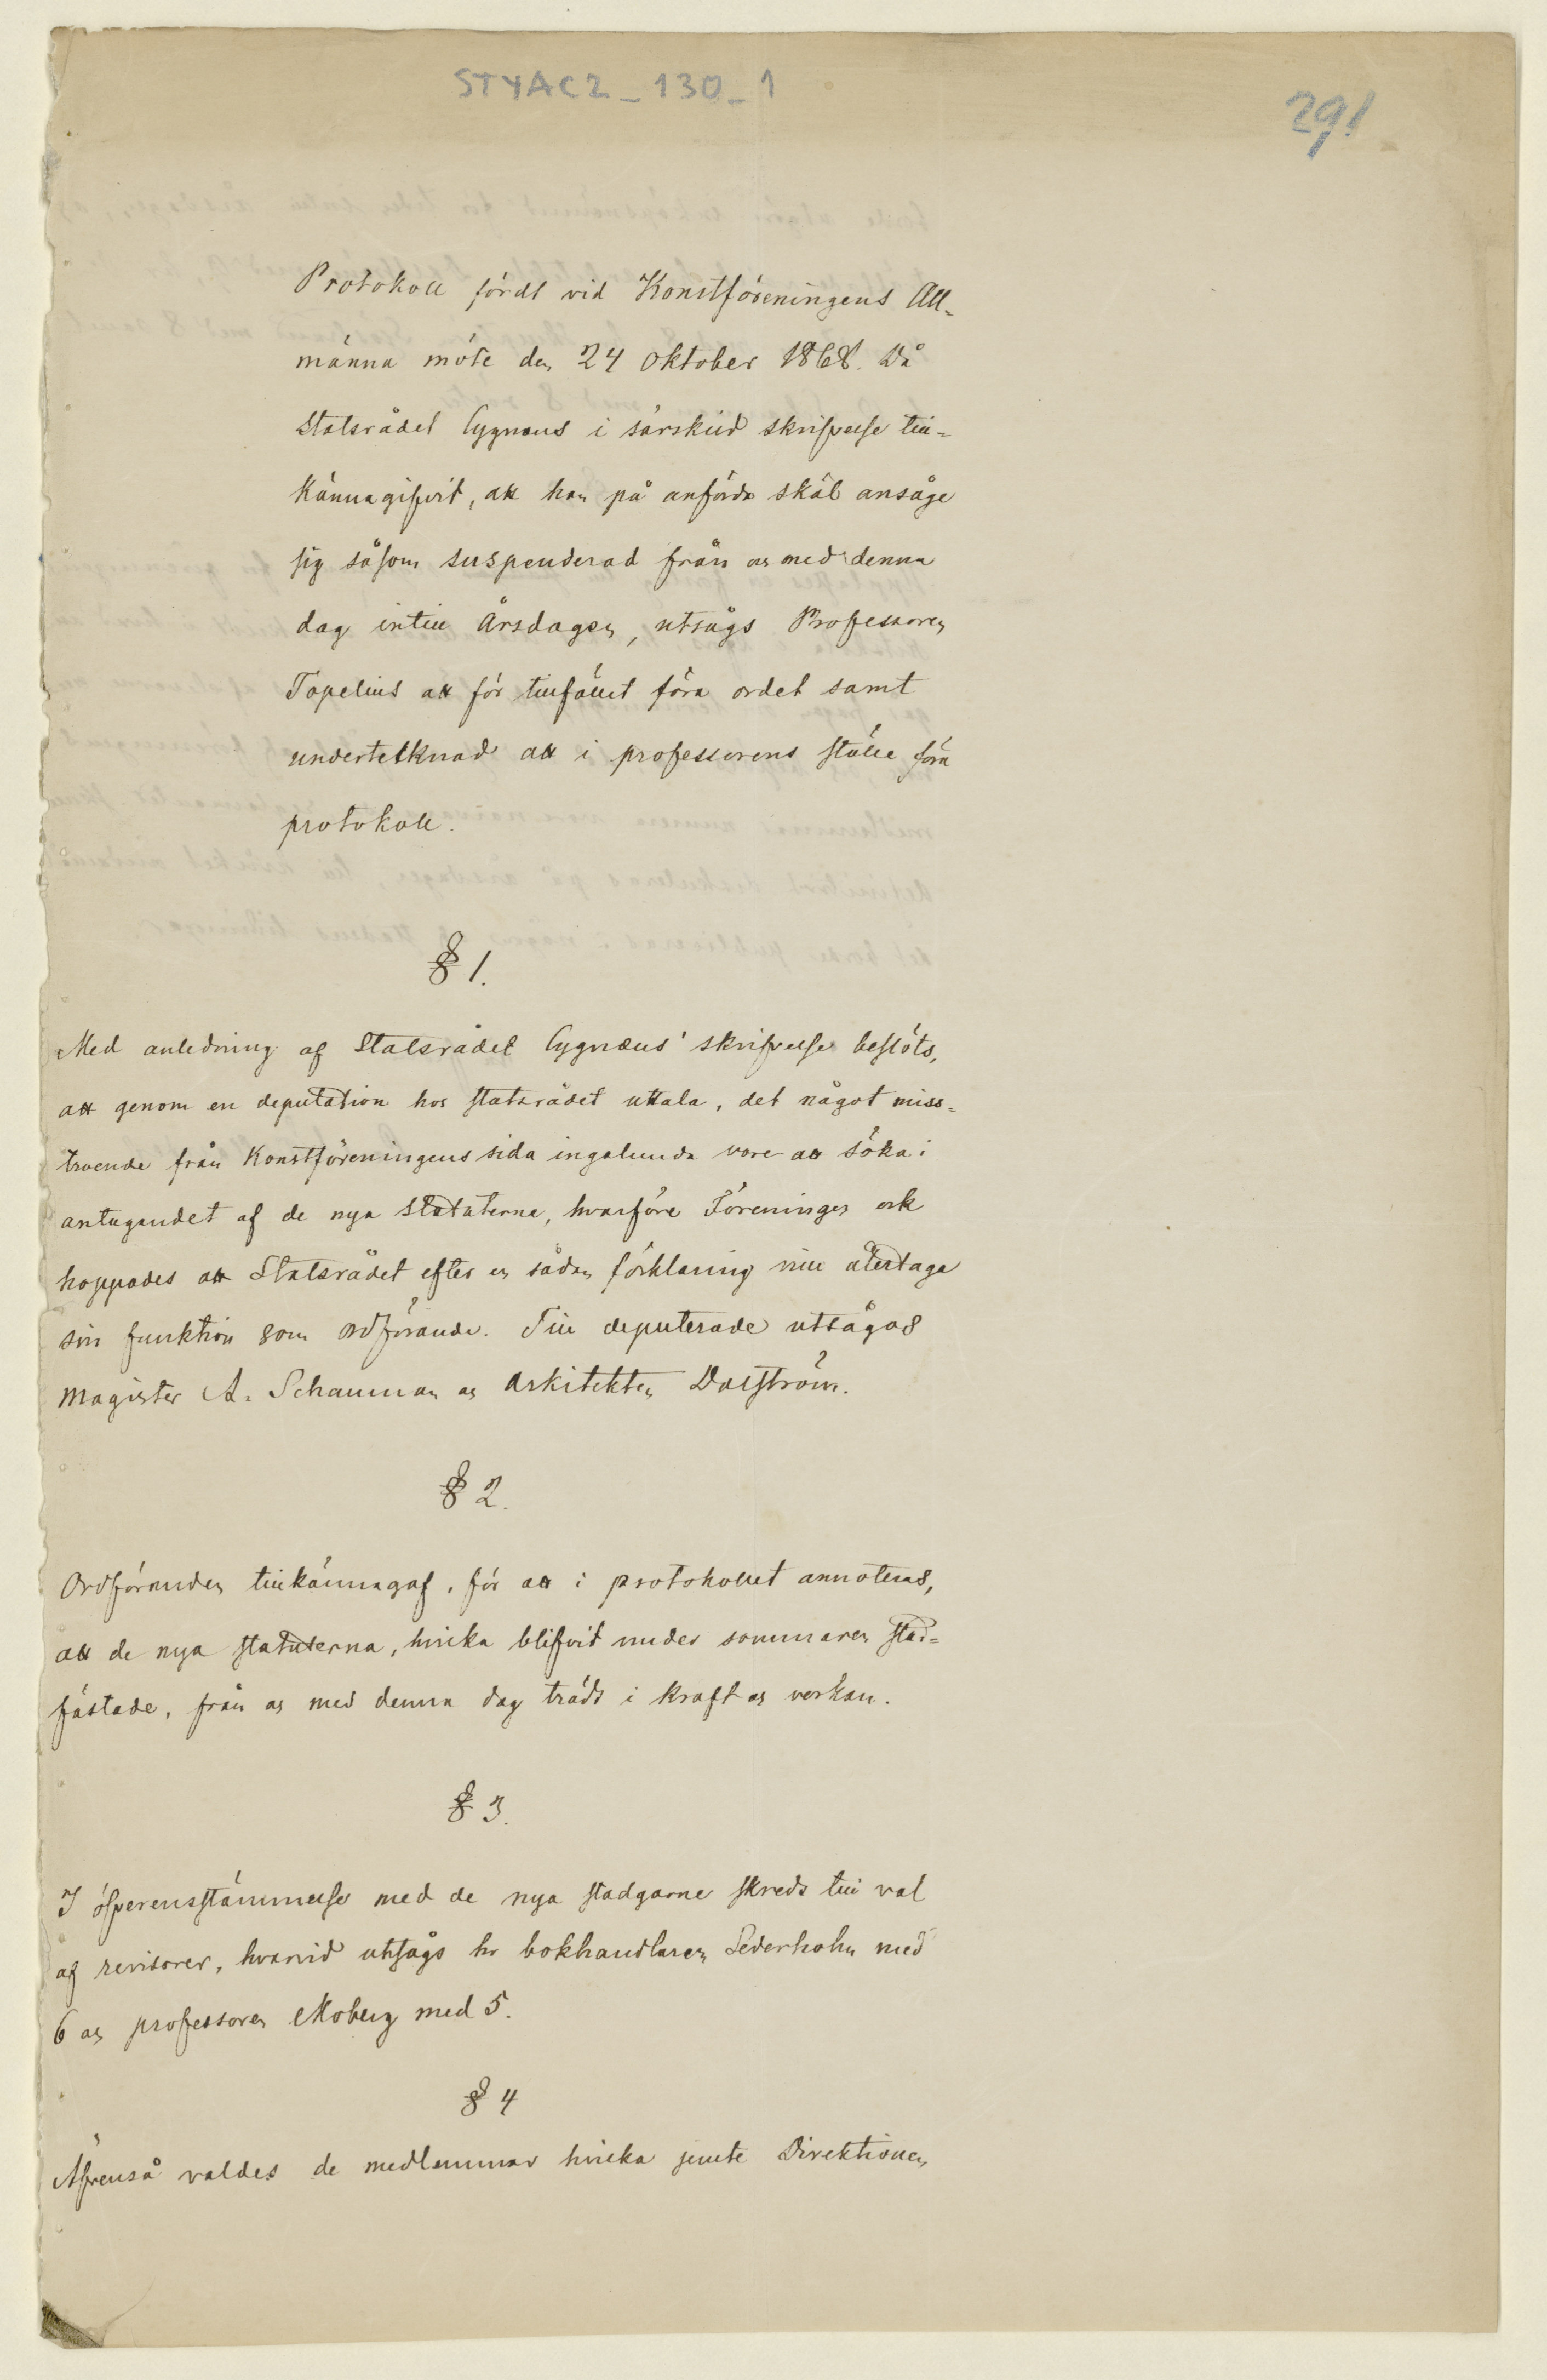 STYAC2_130_1
29!
Protokoll fördt vid Konstföreningens All-
männa möte den 24 Oktober 1868. Då
Statsrådet Cygnæus i särskild skrifvelse till-
kännagifvit, att han på anförda skäl ansåge
sig såsom suspenderad från och med denna
dag intill Årsdagen, utsågs Professoren
Topelius att för tillfället föra ordet samt
undertecknad att i professorens ställe föra
protokoll.
§ 1.
Med anledning af Statsrådet Cygnæus' skrifvelse beslöts,
att genom en deputation hos statsrådet uttala, det något miss-
troende från Konstföreningens sida ingalunda vore att söka i
antagandet af de nya statuterna, hvarföre Föreningen ock
hoppades att Statsrådet efter en sådan förklaring ville återtaga
sin funktion som ordförande. Till deputerade utsågos
Magister A. Schauman och Arkitekten Dalström.
§ 2.
Ordföranden tillkännagaf, för att i protokollet annoteras,
att de nya statuterna, hvilka blifvit under sommaren stad-
fästade, från och med denna dag trädt i kraft och verkan.
§ 3.
I öfverensstämmelse med de nya stadgarne skreds till val
af revisorer, hvarvid utsågs hr bokhandlaren Sederholm med
6 och professoren Moberg med 5.
§ 4
Äfvenså valdes de medlemmar hvilka jemte Direktionen